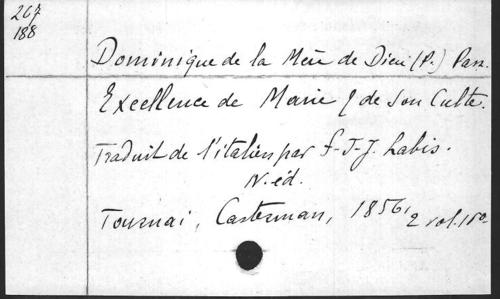 267
188
Dominique de la Mère de Dieu (P.) Pass.
Excellence de Marie & de son Culte.
Traduit de l'italien par F-J-J. Labis.
N. éd.
Tournai, Casterman, 1856, 2 vol. 18°